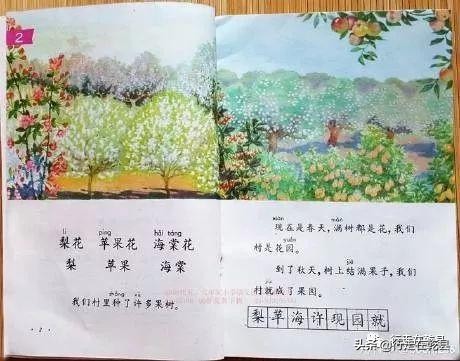 2
lí
píng
hǎi táng
梨花 苹果花 海棠花
梨 苹果 海棠
zhòng xǔ
我们村里种了许多果树。
· 2 ·
xiàn mǎn
现在是春天，满树都是花，我们
yuán
村是花园。
jiē
到了秋天，树上结满果子，我们
jiù
村就成了果园。
梨 苹 海 许 现 园 就
头条@行走在乾县